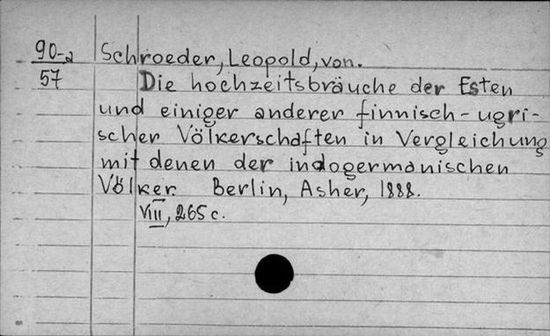 90-2 Schroeder, Leopold, von.
57 Die hochzeitsbräuche der Esten
und einiger anderer finnisch-ugri-
scher Völkerschaften in Vergleichung
mit denen der indogermanischen
Völker. Berlin, Asher, 1888.
VIII, 265 c.